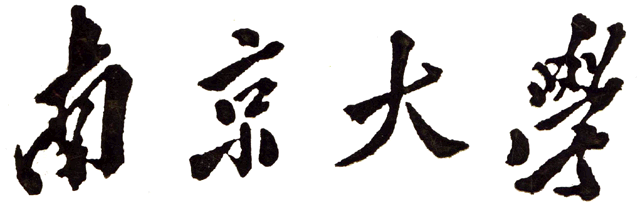 南京大學